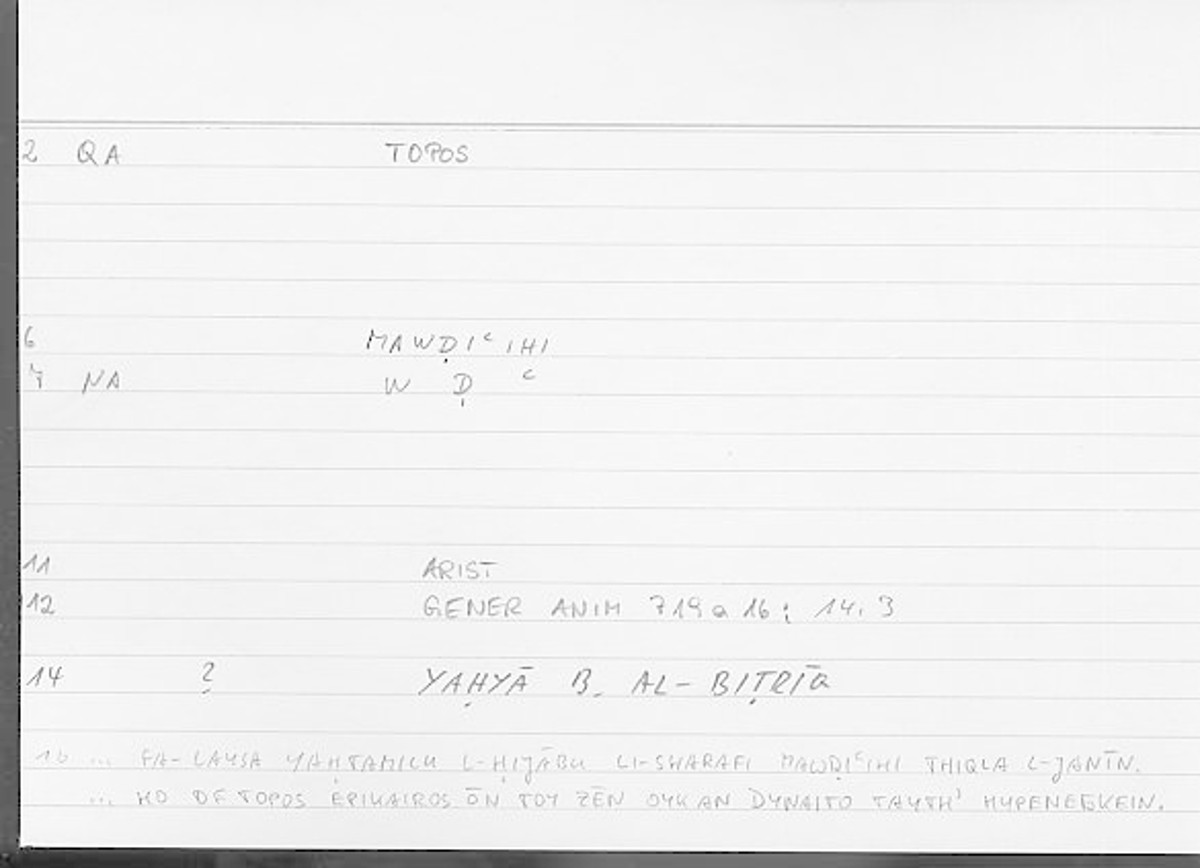 2 QA TOPOS
6 MAWḌIʿIHI
7 NA W Ḍ ʿ
11 ARIST
12 GENER ANIM 719 a 16; 14.3
14 ? YAḤYĀ B. AL-BIṬRĪQ
16 ... FA-LAYSA YAḤTAMILU L-ḤIJĀBU LI-SHARAFI MAWḌIʿIHI THIQLA L-JANĪN.
... HO DE TOPOS EPIKAIROS ŌN TOY ZĒN OYK AN DYNAITO TAYTH' HYPENEGKEIN.